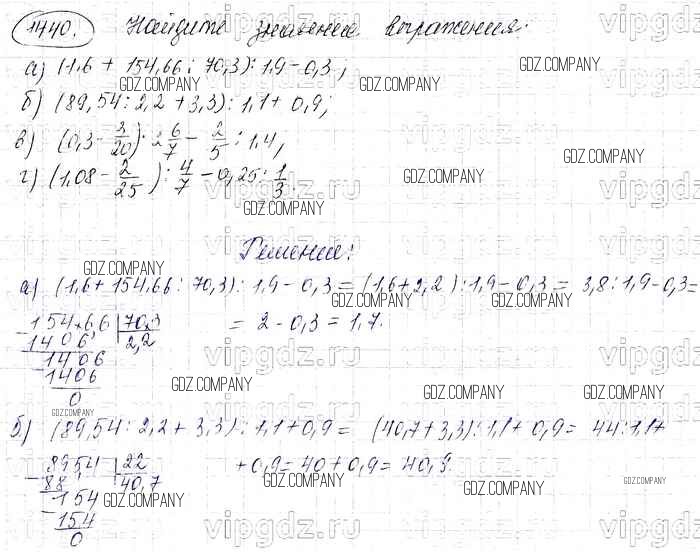 1440. Найдите значение выражения:
а) (1,6 + 154,66 : 70,3) : 1,9 - 0,3;
GDZ.COMPANY GDZ.COMPANY
б) (89,54 : 2,2 + 3,3) : 1,1 + 0,9;
в) (0,3 - 3/20) · 2 6/7 - 2/5 : 1,4;
GDZ.COMPANY GDZ.COMPANY
г) (1,08 - 2/25) : 4/7 - 0,25 : 1/3.
vipgdz.ru vipgdz.ru
GDZ.COMPANY GDZ.COMPANY
Решение:
GDZ.COMPANY
а) (1,6 + 154,66 : 70,3) : 1,9 - 0,3 = (1,6 + 2,2) : 1,9 - 0,3 = 3,8 : 1,9 - 0,3 =
GDZ.COMPANY GDZ.COMPANY GDZ.COMPANY
154,66 | 70,3 = 2 - 0,3 = 1,7.
1406 2,2
1406
1406
0
vipgdz.ru vipgdz.ru
GDZ.COMPANY GDZ.COMPANY GDZ.COMPANY
GDZ.COMPANY
б) (89,54 : 2,2 + 3,3) : 1,1 + 0,9 = (40,7 + 3,3) : 1,1 + 0,9 = 44 : 1,1 +
GDZ.COMPANY GDZ.COMPANY
8954 | 22 + 0,9 = 40 + 0,9 = 40,9.
88 40,7
154
154
0
GDZ.COMPANY GDZ.COMPANY GDZ.COMPANY GDZ.COMPANY
vipgdz.ru vipgdz.ru